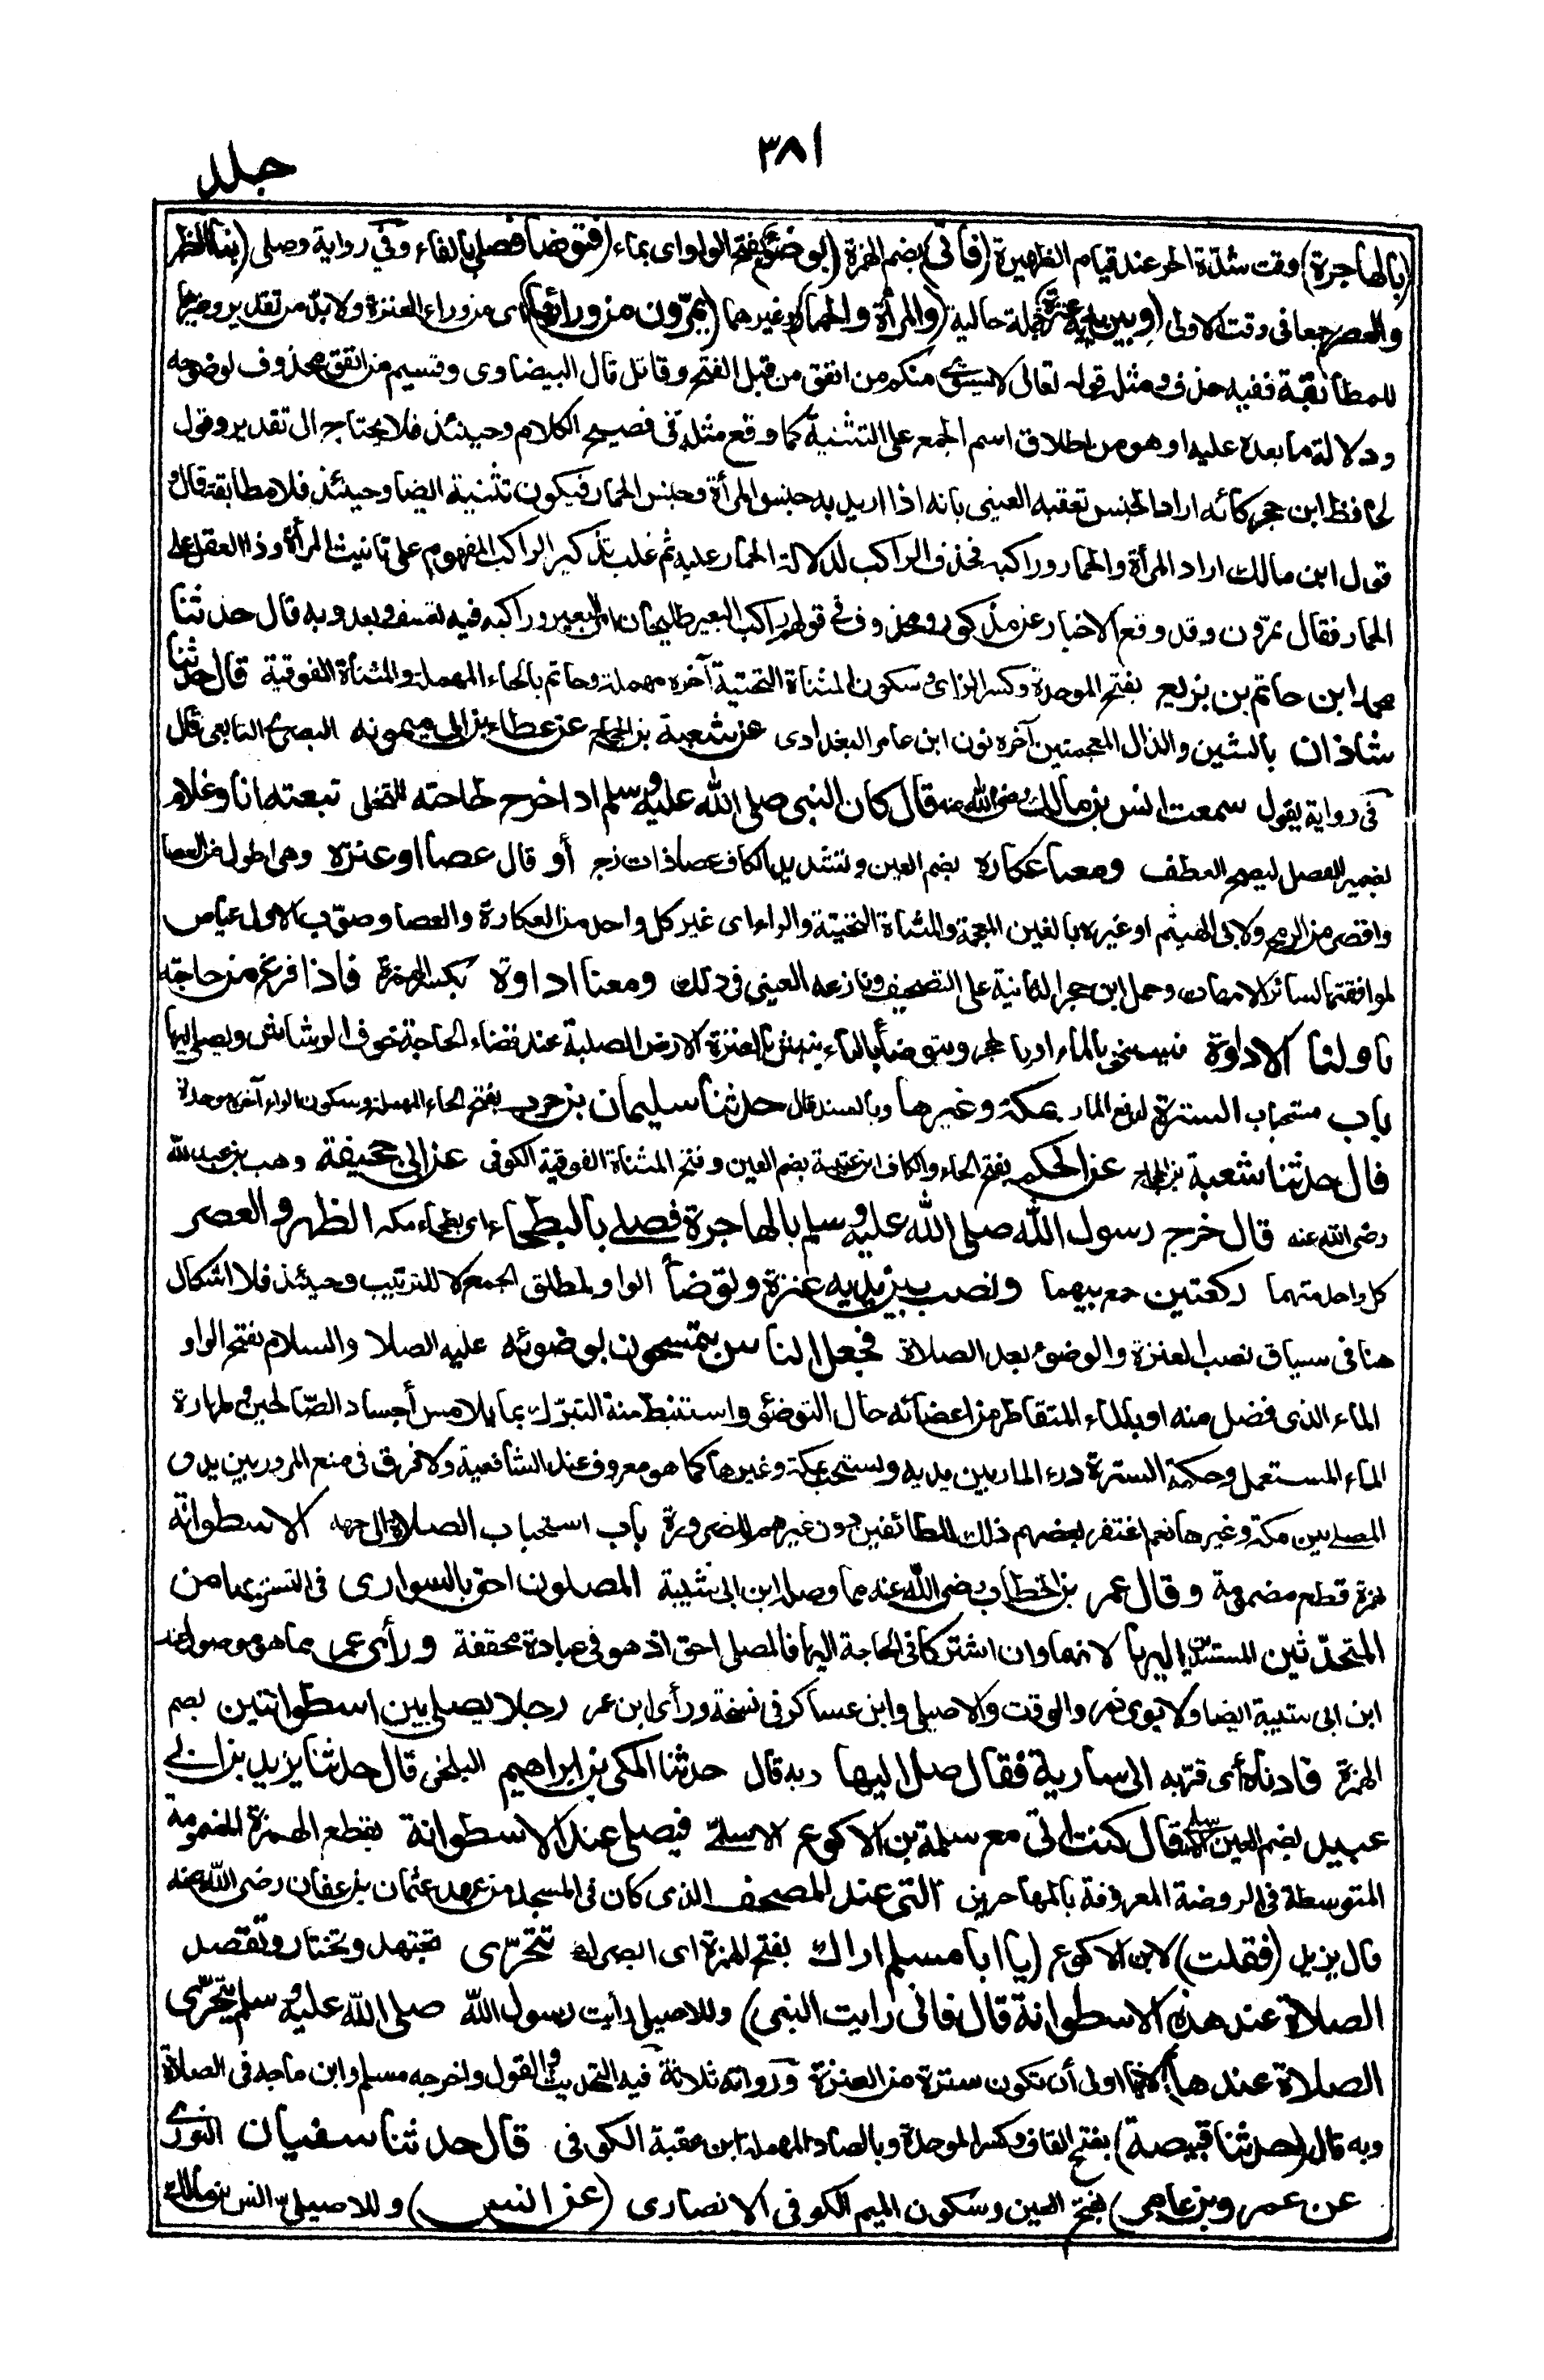 ٣٨١
جلد
(بالهاجرة) وقت شدّة الحر عند قيام الظهيرة (فأتى) بضم الهمزة (بوضوء) بفتح الواو اى بماء (فتوضأ فصلى) بالفاء وفي رواية وصلى (بنا الظهر
والعصر) جمعا فى وقت الاولى (وبين يديه عنزة) جملة حالية (والمرأة والحمار) وغيرهما (يمرّون من ورائها) اى من وراء العنزة ولا بدّ من تقدير وغيرهما
للمطابقة ففيه حذف ومثل قوله تعالى لا يستوى منكم من انفق من قبل الفتح وقاتل قال البيضاوى وقسيم من انفق محذوف لوضوحه
ودلالة ما بعده عليه او هو من اطلاق اسم الجمع على التثنية كما وقع مثله فى فصيح الكلام وحينئذ فلا يحتاج الى تقدير وقول
لحافظ ابن حجر كأنه اراد الجنس تعقبه العينى بانه اذا اريد به جنس المرأة وجنس الحمار فيكون تثنية ايضا وحينئذ فلا مطابقة قال و
قول ابن مالك اراد المرأة والحمار وراكبه فحذف الراكب لدلالة الحمار عليه ثم غلب تذكير الراكب المفهوم على تانيث المرأة وذا العقل على
الحمار فقال يمرّون وقد وقع الاخبار عن مذكور ومحذوف فى قولهم راكب البعير طليحان اى البعير وراكبه فيه تعسف وبعد وبه قال حدثنا
محمد ابن حاتم بن بزيع بفتح الموحدة وكسر الزاى وسكون المثناة التحتية آخره مهملة وحاتم بالحاء المهملة والمثناة الفوقية قال حدثنا
شاذان بالشين والذال المعجمتين آخره نون ابن عامر البغدادى عن شعبة بن الحجاج عن عطاء بن ابى ميمونه البصرى التابعى قال
فى رواية يقول سمعت انس بن مالك رضى الله عنه قال كان النبى صلى الله عليه وسلم اذا خرج لحاجته للتخلى تبعته انا وغلام
بضمير الفصل ليصح العطف ومعنا عكازه بضم العين وتشديد الكاف عصا ذات زج أو قال عصا او عنزه وهى اطول من العصا
واقصر من الرمح ولابى الهيثم او غيره بالغين المعجمة والمثناة التحتية والراء اى غير كل واحد من العكازة والعصا وصوّب الاول عياض
لموافقتها لسائر الامهات وحمل ابن حجر الثانية على التصحيف ونازعه العينى فى ذلك ومعنا اداوة بكسر الهمزة فاذا فرغ من حاجته
ناولنا الاداوة فيستنجى بالماء او بالحجر ويتوضأ بالماء ينبش بالعنزة الارض الصلبة عند قضاء الحاجة خوف الرشاش ويصلى اليها
باب مستحباب السترة لدفع المار بمكة وغيرها وبالسند قال حدثنا سليمان بن حرب بفتح الحاء المهملة وسكون الراء آخره موحدة
قال حدثنا شعبة بن الحجاج عن الحكم بفتح الحاء والكاف ابن عتيبة بضم العين وفتح المثناة الفوقية الكوفى عن ابى جحيفة وهب بن عبد الله
رضى الله عنه قال خرج رسول الله صلى الله عليه وسلم بالهاجرة فصلى بالبطحاء اى بطحاء مكه الظهر والعصر
كل واحد منهما ركعتين جمع بينهما ونصب بين يديه عنزة وتوضأ الواو لمطلق الجمع لا للترتيب وحينئذ فلا اشكال
هنا فى سياق نصب العنزة والوضوء بعد الصلاة فجعل الناس يتمسحون بوضوئه عليه الصلا والسلام بفتح الواو
الماء الذى فضل منه او بالماء المتقاطر من اعضائه حال التوضئ واستنبط منه التبرّك بما يلامس أجساد الصّالحين وطهارة
الماء المستعمل وحكمة السترة درء المار بين يديه وتستحب بمكة وغيرها كما هو معروف عند الشافعية ولا فرق فى منع المرور بين يدى
المصلى بين مكة وغيرها نعم اغتفر بعضهم ذلك للطائفين دون غيرهم للضرورة باب استحباب الصلاة الى جهه الاسطوانة
بهمزة قطع مضمومة وقال عمر بن الخطاب رضى الله عنه مما وصله ابن ابى شيبة المصلون احق بالسوارى فى التستر بها من
المتحدّثين المستندين اليها لانهما وان اشتركا فى الحاجة اليها فالمصلى احق اذ هو فى عبادة محققة ورأى عمر مما هو موصول عند
ابن ابى شيبة ايضا ولابوى ذر والوقت والاصيلى وابن عساكر فى نسخة ورأى ابن عمر رجلا يصلى بين اسطوانتين بضم
الهمزة فادناه أى قرّبه الى سارية فقال صل اليها وبه قال حدثنا المكى بن ابراهيم البلخى قال حدثنا يزيد بن ابى
عبيد بضم العين الاسلمى قال كنت اتى مع سلمة بن الاكوع الاسلمى فيصلى عند الاسطوانة بقطع الهمزة المضمومة
المتوسطة فى الروضة المعروفة بالمهاجرين التى عند المصحف الذى كان فى المسجد من عهد عثمان بن عفان رضى الله عنه
قال يزيد (فقلت) لابن الاكوع (يا ابا مسلم اراك بفتح الهمزة اى ابصرك تتحرّى تجتهد وتختار وتقصد
الصلاة عند هذه الاسطوانة قال فانى رايت النبى) وللاصيلى رأيت رسول الله صلى الله عليه وسلم يتحرّى
الصلاة عندها) لانها اولى أن تكون سترة من العنزة ورواته ثلاثة فيه التحديث والقول واخرجه مسلم وابن ماجه فى الصلاة
وبه قال (حدثنا قبيصة) بفتح القاف وكسر الموحدة وبالصاد المهملة ابن عقبة الكوفى قال حدثنا سفيان الثورى
عن عمرو بن عامر) بفتح العين وسكون الميم الكوفى الانصارى (عن انس) وللاصيلى انس بن مالك